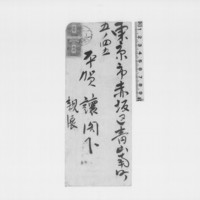 東京市赤坂区青山南町
五ノ四五
平賀譲閣下
親展